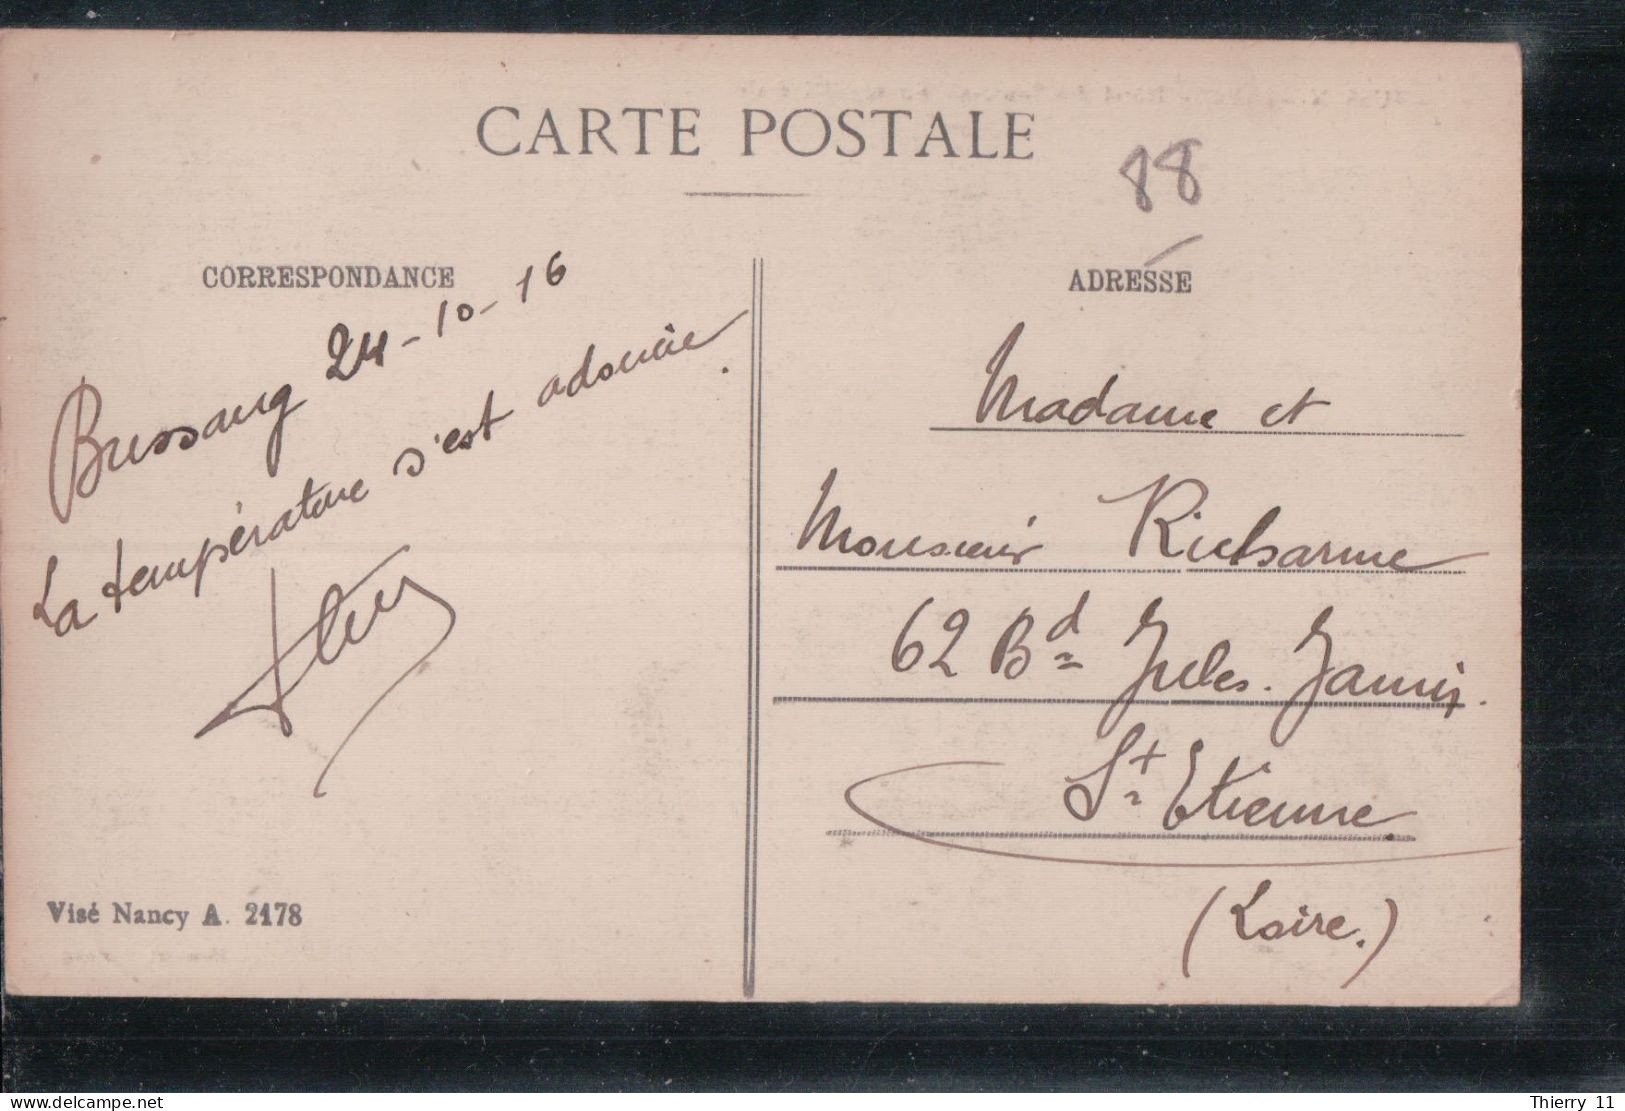 CARTE POSTALE
88
CORRESPONDANCE
Bussang 24-10-16
La température s'est adoucie.
ADRESSE
Madame et
Monsieur Richarme
62 Bd Jules-Janin.
St Etienne.
(Loire.)
Visé Nancy A. 2178
www.delcampe.net
Thierry 11